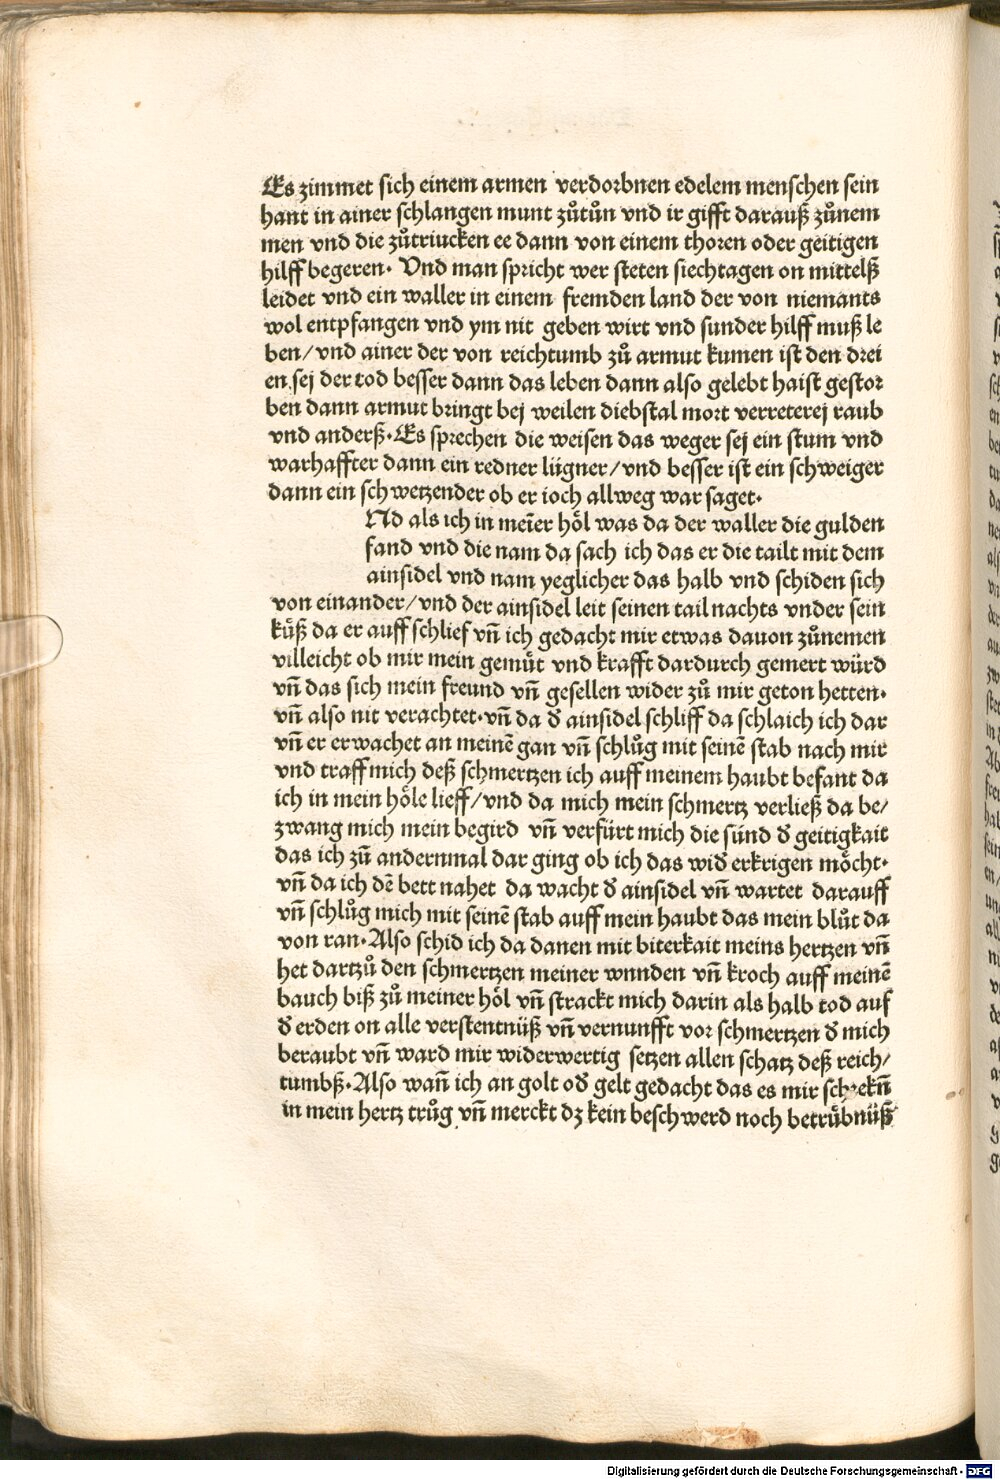 Es zimmet sich einem armen verdorbnen edelem menschen sein
hant in ainer schlangen munt zůtůn vnd ir gifft darauß zůnem
men vnd die zůtriucken ee dann von einem thoren oder geitigen
hilff begeren. Vnd man spricht wer steten siechtagen on mittelß
leidet vnd ein waller in einem fremden land der von niemants
wol entpfangen vnd ym nit geben wirt vnd sunder hilff muß le
ben/vnd ainer der von reichtumb zů armut kumen ist den drei
en sej der tod besser dann das leben dann also gelebt haist gestor
ben dann armut bringt bej weilen diebstal mort verreterej raub
vnd anderß. Es sprechen die weisen das weger sej ein stum vnd
warhaffter dann ein redner lügner/vnd besser ist ein schweiger
dann ein schwetzender ob er ioch allweg war saget.
Nd als ich in meīer höl was da der waller die gulden
fand vnd die nam da sach ich das er die tailt mit dem
ainsidel vnd nam yeglicher das halb vnd schiden sich
von einander/vnd der ainsidel leit seinen tail nachts vnder sein
küß da er auff schlief vn̄ ich gedacht mir etwas dauon zůnemen
villeicht ob mir mein gemüt vnd krafft dardurch gemert würd
vn̄ das sich mein freund vn̄ gesellen wider zů mir geton hetten.
vn̄ also nit verachtet. vn̄ da đ ainsidel schliff da schlaich ich dar
vn̄ er erwachet an meinē gan vn̄ schlůg mit seinē stab nach mir
vnd traff mich deß schmertzen ich auff meinem haubt befant da
ich in mein höle lieff/vnd da mich mein schmertz verließ da be/
zwang mich mein begird vn̄ verfürt mich die sünd đ geitigkait
das ich zů andernmal dar ging ob ich das wiđ erkrigen möcht.
vn̄ da ich dē bett nahet da wacht đ ainsidel vn̄ wartet darauff
vn̄ schlůg mich mit seinē stab auff mein haubt das mein blůt da
von ran. Also schid ich da danen mit biterkait meins hertzen vn̄
het dartzů den schmertzen meiner wnnden vn̄ kroch auff meinē
bauch biß zů meiner höl vn̄ strackt mich darin als halb tod auf
đ erden on alle verstentnüß vn̄ vernunfft vor schmertzen đ mich
beraubt vn̄ ward mir widerwertig setzen allen schatz deß reich/
tumbß. Also wan̄ ich an golt ođ gelt gedacht das es mir schrekn̄
in mein hertz trůg vn̄ merckt dz kein beschwerd noch betrübnüß
Digitalisierung gefördert durch die Deutsche Forschungsgemeinschaft - DFG